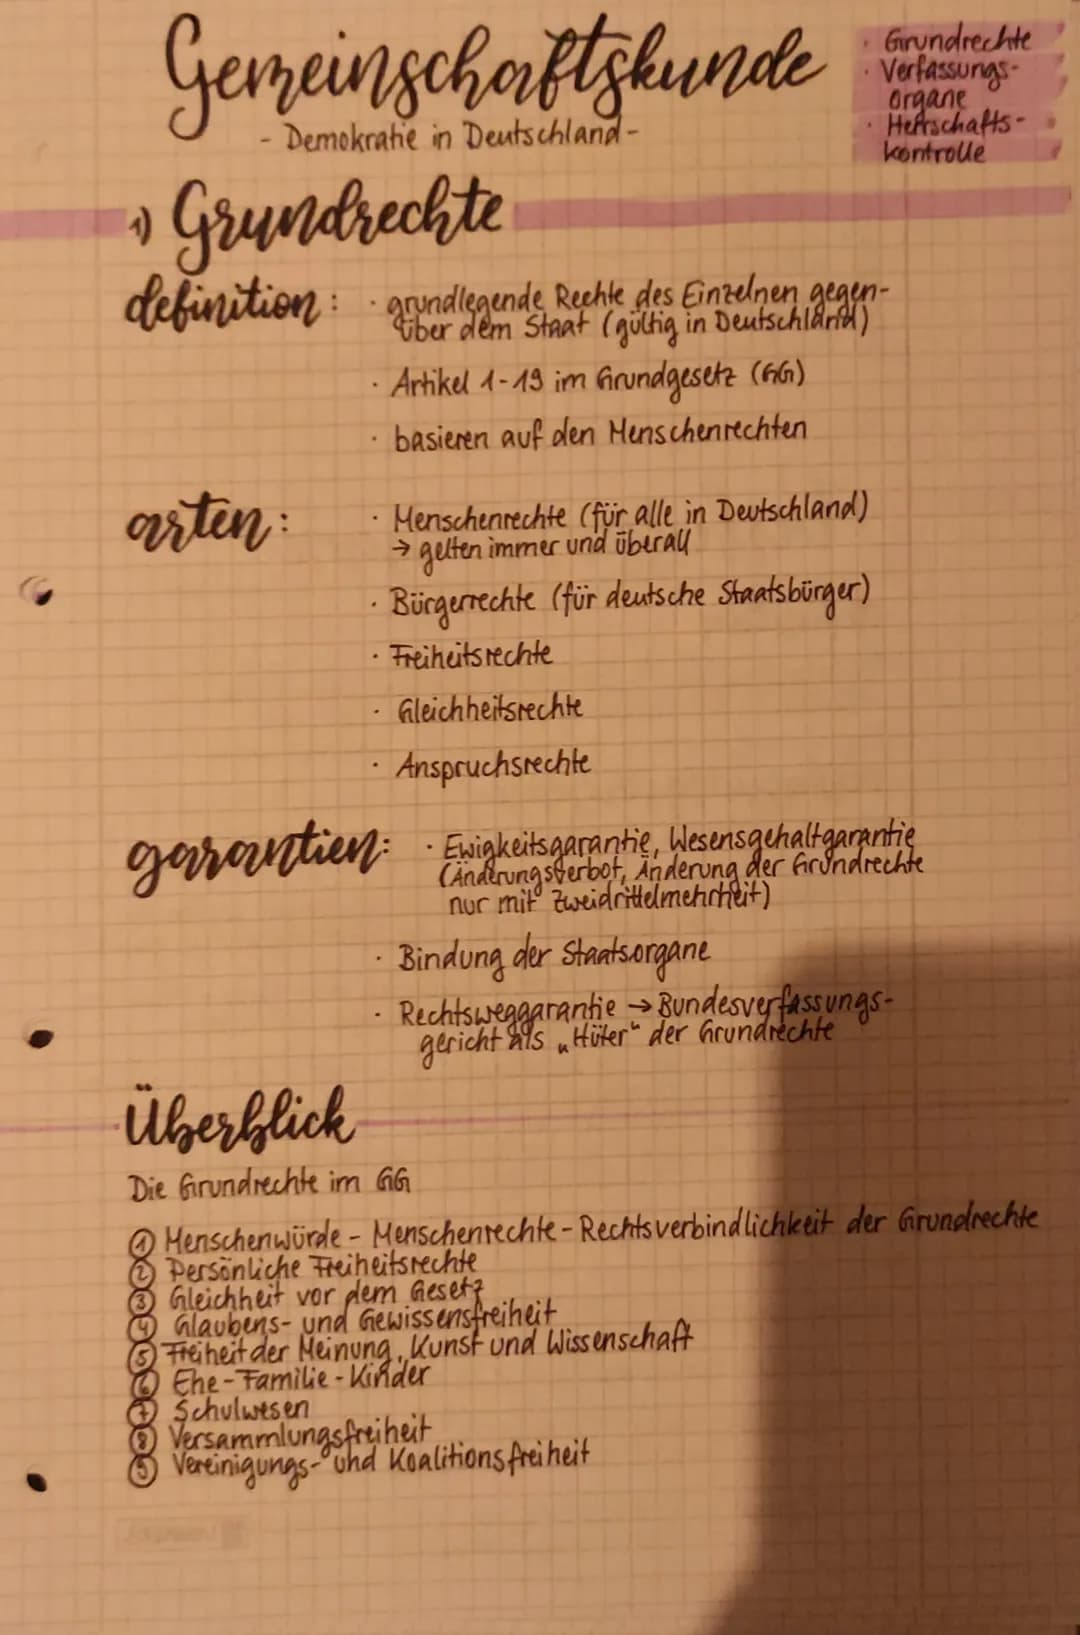 Gemeinschaftskunde
- Demokratie in Deutschland -
· Grundrechte
· Verfassungs-
organe
· Herrschafts-
kontrolle
1) Grundrechte
definition: · grundlegende Rechte des Einzelnen gegen-
über dem Staat (gültig in Deutschland)
· Artikel 1-19 im Grundgesetz (GG)
· basieren auf den Menschenrechten
arten: · Menschenrechte (für alle in Deutschland)
→ gelten immer und überall
· Bürgerrechte (für deutsche Staatsbürger)
· Freiheitsrechte
· Gleichheitsrechte
· Anspruchsrechte
garantien: · Ewigkeitsgarantie, Wesensgehaltgarantie
(Änderungsverbot, Änderung der Grundrechte
nur mit Zweidrittelmehrheit)
· Bindung der Staatsorgane
· Rechtsweggarantie → Bundesverfassungs-
gericht als „Hüter“ der Grundrechte
Überblick
Die Grundrechte im GG
① Menschenwürde - Menschenrechte - Rechtsverbindlichkeit der Grundrechte
② Persönliche Freiheitsrechte
③ Gleichheit vor dem Gesetz
④ Glaubens- und Gewissensfreiheit
⑤ Freiheit der Meinung, Kunst und Wissenschaft
⑥ Ehe - Familie - Kinder
⑦ Schulwesen
⑧ Versammlungsfreiheit
⑨ Vereinigungs- und Koalitionsfreiheit